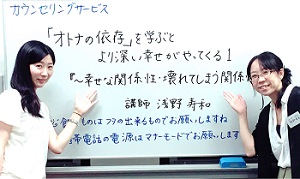 カウンセリングサービス
「オトナの依存」を学ぶと
より深い幸せがやってくる!
『〜幸せな関係性・壊れてしまう関係
講師 浅野寿和
ものはフタの出来るものでお願いしますね
帯電話の電源はマナーモードでお願いします